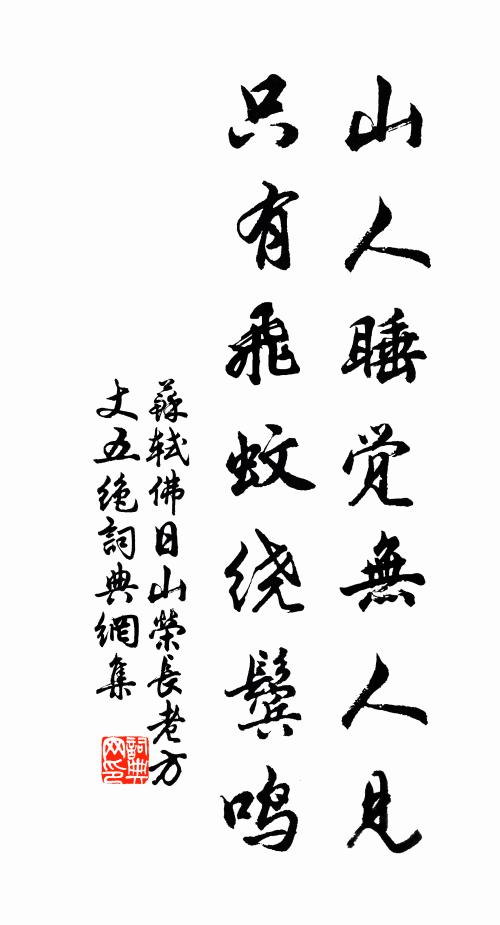 山人睡觉無人見
只有飛蚊绕鬓鳴
蘇軾佛日山榮長老方
丈五绝詞典網集
詞典
网印